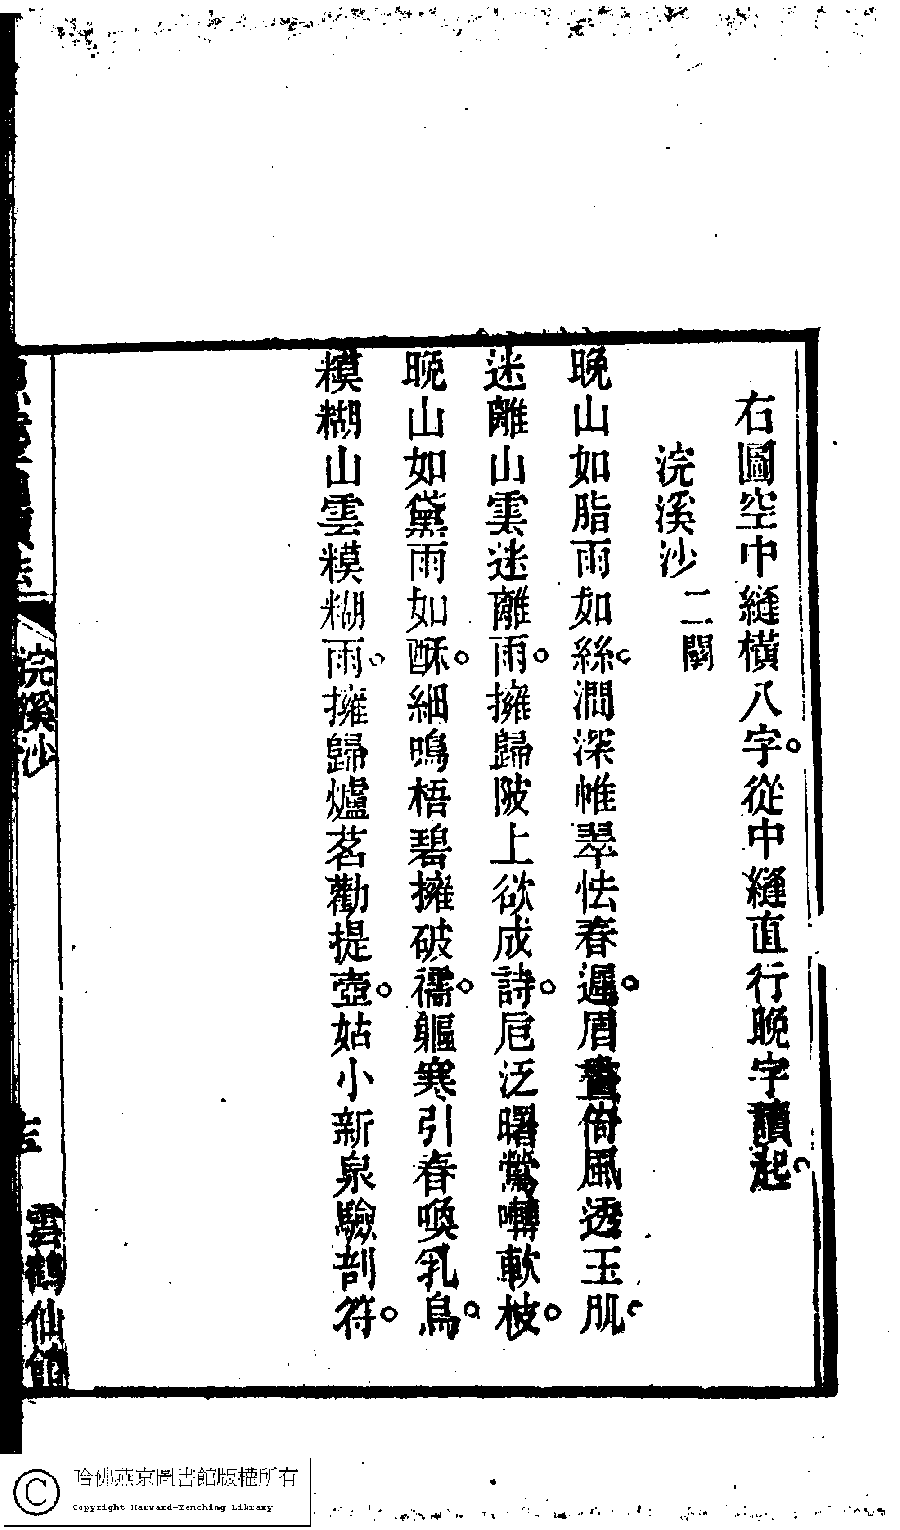 右圖空中縫橫八字。從中縫直行晚字讀起。
浣溪沙 二闋
晚山如脂雨如絲。潤深帷翠怯春遲。眉畫倚風透玉肌。
迷離山雲迷離雨。擁歸陂上欲成詩。卮泛曙鶯囀軟枝。
晚山如黛雨如酥。細鳴梧碧擁破襦。軀寒引春喚乳鳥。
糢糊山雲糢糊雨。擁歸爐茗勸提壺。姑小新泉驗剖符。
浣溪沙
雲鶴仙館
哈佛燕京圖書館版權所有
Copyright Harvard-Yenching Library